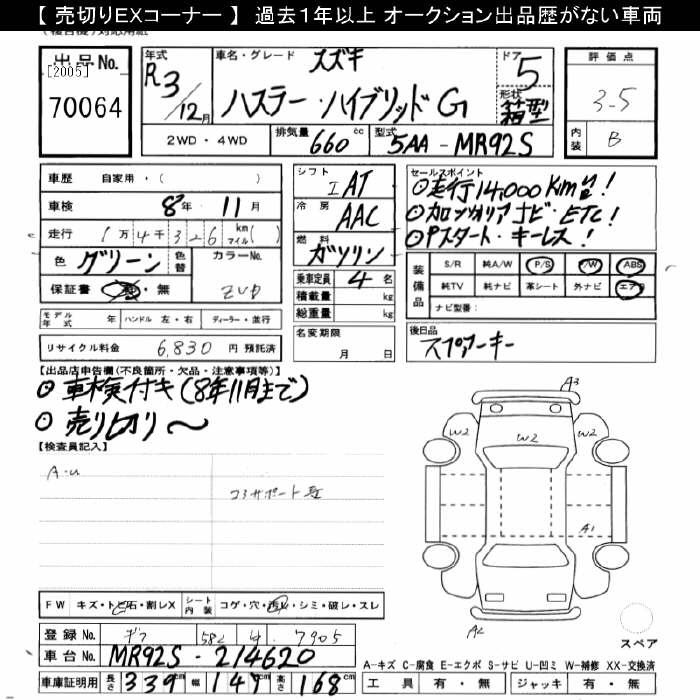 【 売切りEXコーナー 】 過去1年以上 オークション出品歴がない車両
出品No. [2005] 70064
年式 R3/12月 車名・グレード スズキ ハスラー・ハイブリッドG ドア 5 形状 箱型
評価点 3-5 内装 B
2WD・4WD 排気量 660cc 型式 5AA-MR92S
車歴 自家用・( )
車検 8年 11月
走行 1万4千326 km マイル( )
色 グリーン 色替 カラーNo. ZVD
保証書 有・無
シフト I AT
冷房 AAC
燃料 ガソリン
乗車定員 4名
積載量 kg
総重量 kg
名変期限 月 日
セールスポイント
走行14,000Km
カロッツェリアナビ・ETC!
Pスタート・キーレス!
装備品 S/R 純A/W P/S P/W ABS
純TV 純ナビ 革シート 外ナビ エアB
ナビ型番:
モデル年式 年 ハンドル 左・右 ディーラー・並行
リサイクル料金 6,830円 預託済
後日品 スペアキー
【出品店申告欄(不良箇所・欠品・注意事項等)】
車検付き(8年11月まで)
売り切り〜
【検査員記入】
A-u
コアサポート
A3
W2 W2 W2
A1
A2
スペア
FW キズ・トビ石・割レX シート内装 コゲ・穴・汚レ・シミ・破レ・スレ
登録No. ギフ 582 7905
車台No. MR92S-214620
車庫証明用 長さ 339cm 幅 147cm 高さ 168cm
A-キズ C-腐食 E-エクボ S-サビ U-凹ミ W-補修 XX-交換済
工具 有・無 ジャッキ 有・無